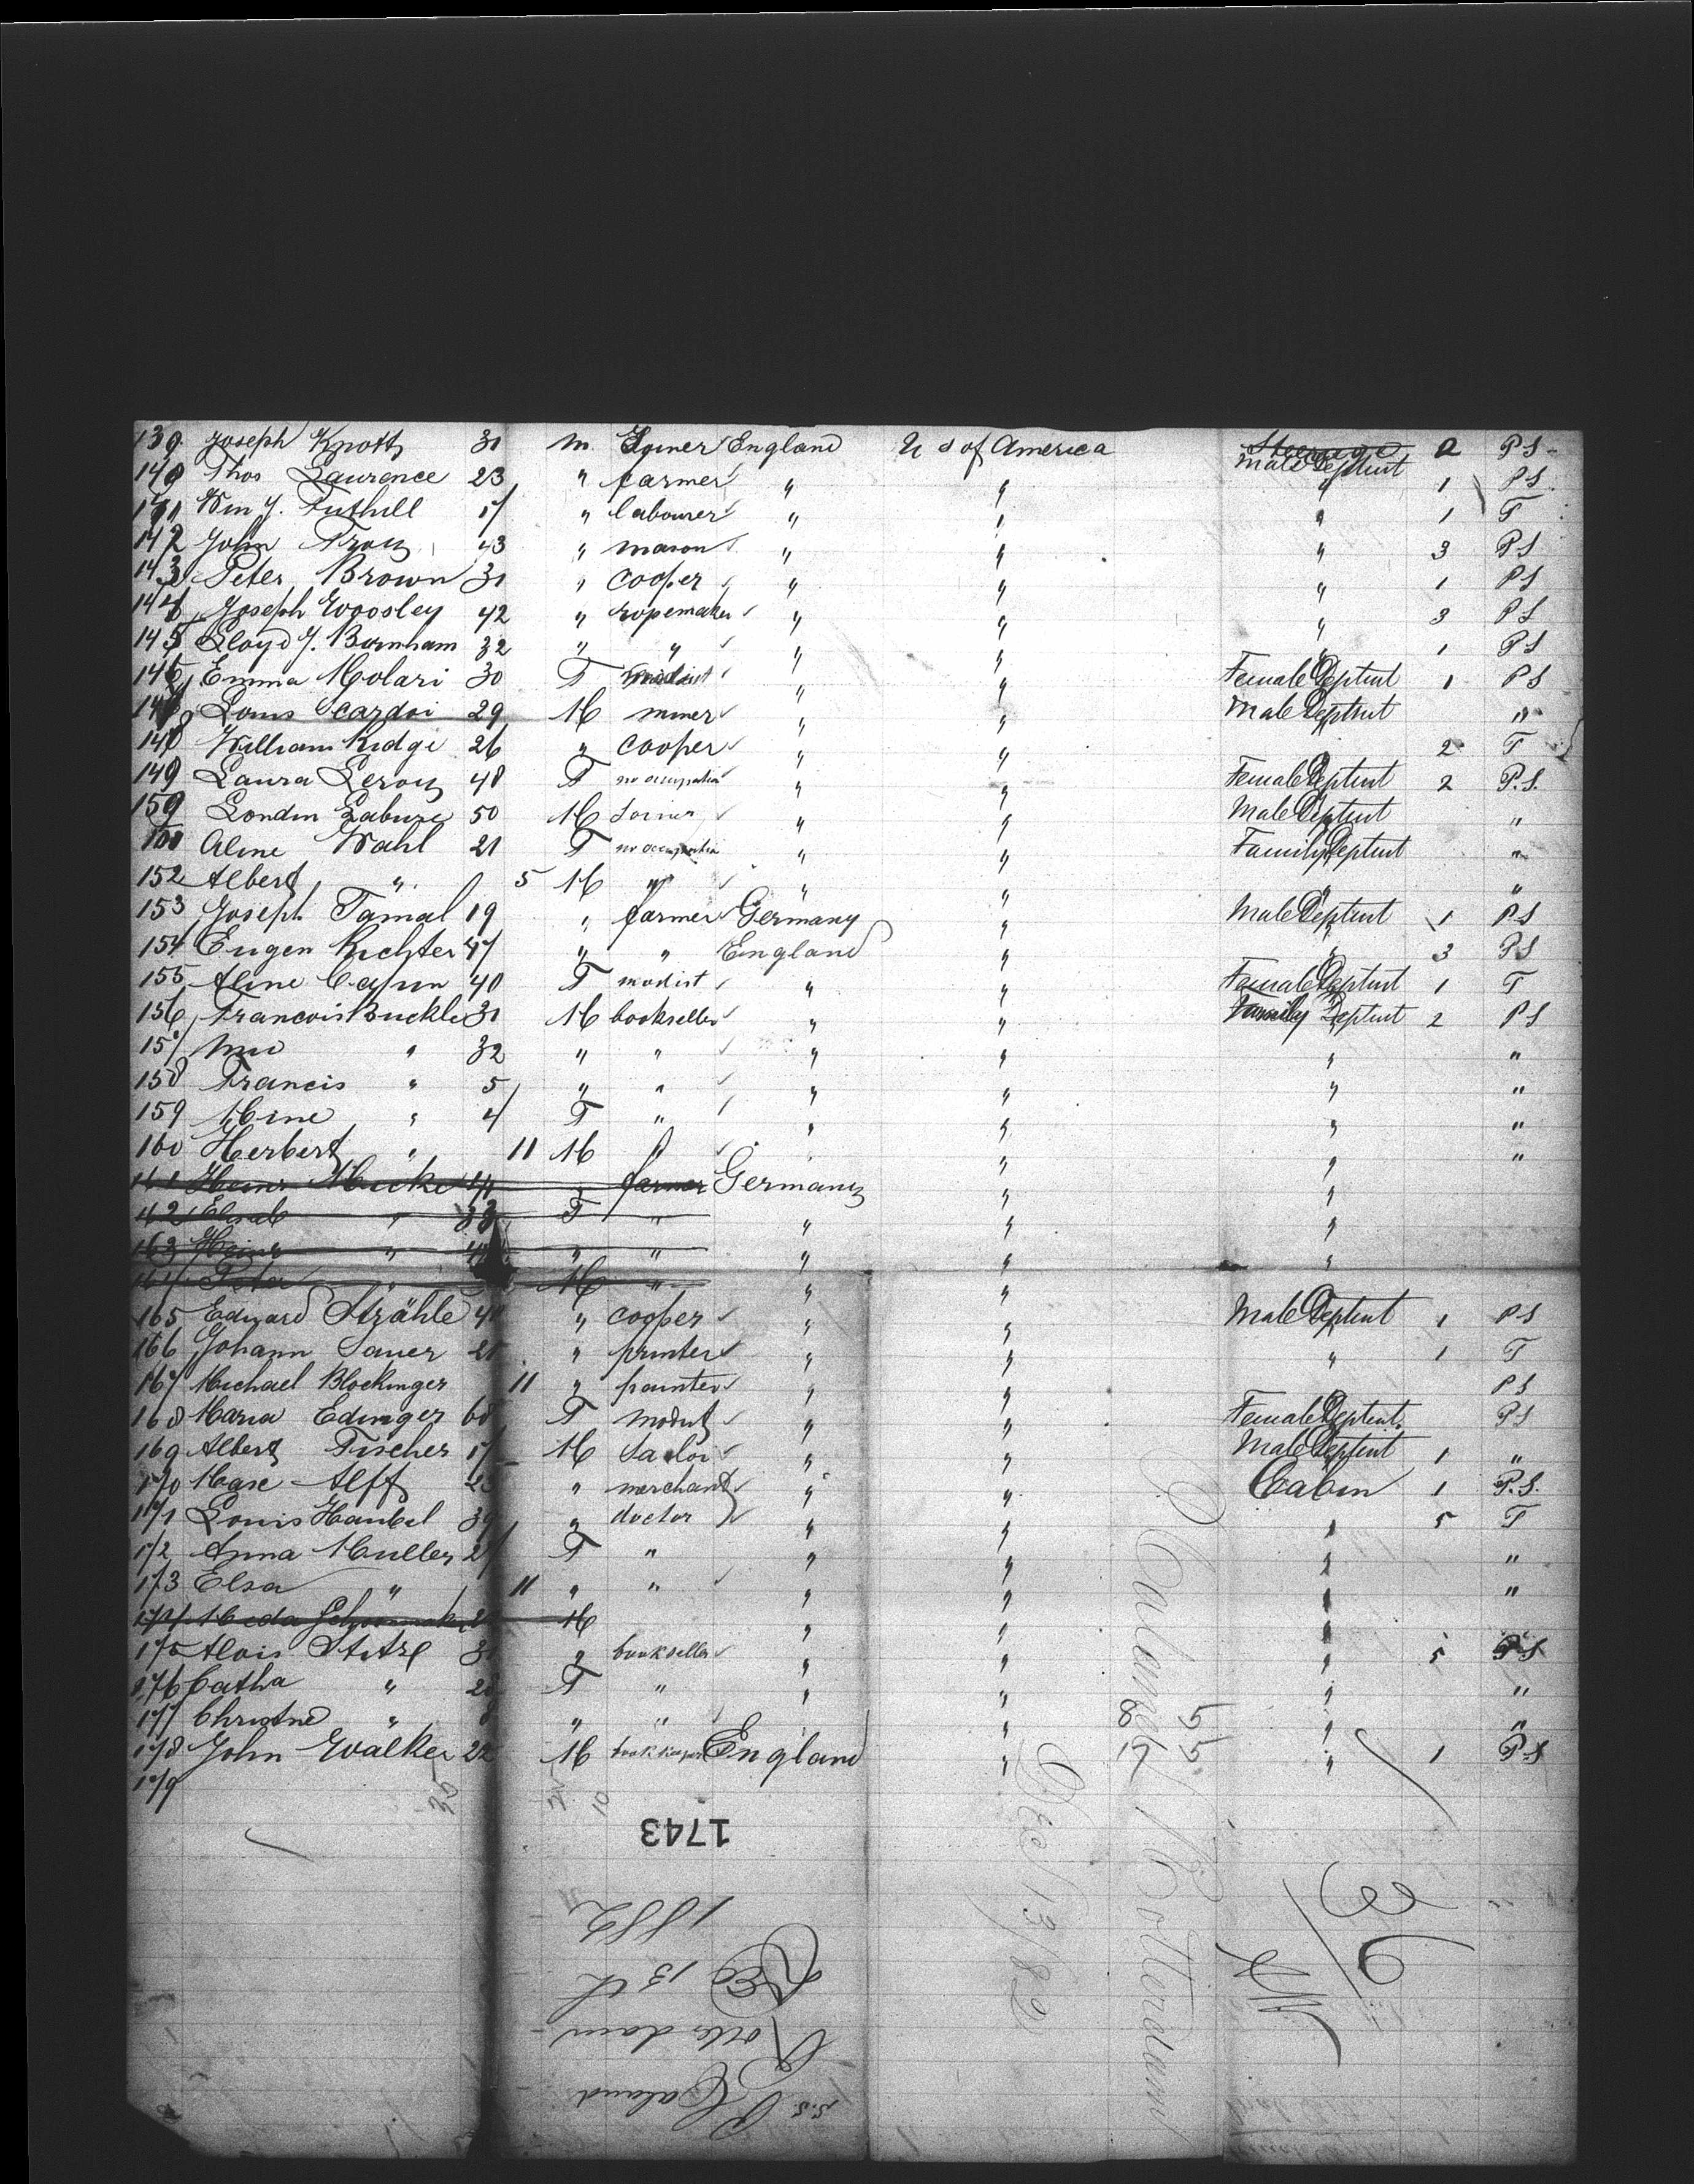 139 Joseph Knott 31 m. Joiner England U S of America Steerage Male Deptmt 2 PS
140 Thos Laurence 23 " farmer " " " 1 PS
141 Wm J. Tuthill 17 " labourer " " " 1 T
142 John Troy 43 " mason " " " 3 PS
143 Peter Brown 31 " cooper " " " 1 PS
144 Joseph Woosley 42 " ropemaker " " " 3 PS
145 Lloyd J. Burnham 32 " " " " " 1 PS
146 Emma Molari 30 F modist " " Female Deptmt 1 PS
147 Louis Scardoi 29 M miner " " Male Deptmt "
148 William Ridge 26 " cooper " " " 2 T
149 Laura Leroy 48 F no occupation " " Female Deptmt 2 P.S.
150 Londin 50 M Joiner " " Male Deptmt "
Aline Wahl 21 F no occupation " " Family Deptmt "
152 Albert " 5 M " " " " "
153 Joseph Tamal 19 " farmer Germany " Male Deptmt 1 PS
154 Eugen Richter 47 " " England " " 3 PS
155 Aline 40 F modist " " Female Deptmt 1 T
156 Francois Buckle 31 M bookseller " " Family Deptmt 2 PS
157 " 32 " " " " " "
158 Francis " 5 " " " " " "
159 Mine " 4 F " " " " "
160 Herbert " 11 M " " " " "
161 Heinr Mucke 44 " farmer Germany " "
162 Elisab " 33 F " " " "
163 Heinr " " " " " "
164 Peter " M " " "
165 Eduard Strähle " cooper " " Male Deptmt 1 PS
166 Johann Sauer " printer " " " 1 T
167 Michael Blockinger 11 " painter " " PS
168 Maria Edinger 68 F modist " " Female Deptmt PS
169 Albert Fischer 17 M Sailor " " Male Deptmt 1 "
170 Max Alff " merchant " " Cabin 1 P.S.
171 Louis Haubel " doctor " " " 5 T
172 Anna Muller F " " " " "
173 Elsa " 11 " " " " " "
174 M " " "
175 Alois " bookseller " " " 5 PS
176 Catha " F " " " " "
177 Christine " " " " " " "
178 John Walker 22 M bookkeeper England " " 1 PS
179
35
10
1743
S.S. P Caland
Rotterdam
Dec 13th
1882
P Caland
Rotterdam
Dec 13/82
55
85
36